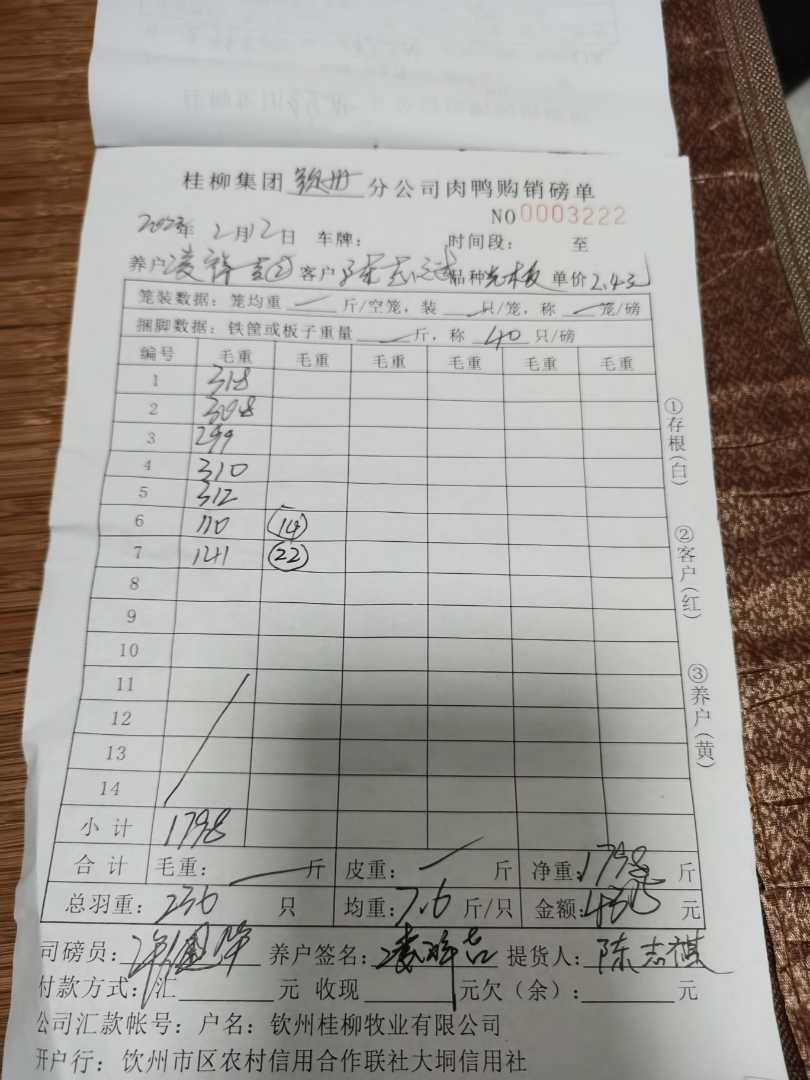 桂柳集团 钦州 分公司肉鸭购销磅单
NO 0003222
2023年 2月12日 车牌: 时间段: 至
养户 凌祥吉② 客户 品种 单价 2.43
笼装数据: 笼均重 — 斤/空笼, 装 — 只/笼, 称 — 笼/磅
捆脚数据: 铁筐或板子重量 — 斤, 称 40 只/磅
编号 毛重 毛重 毛重 毛重 毛重 毛重
1 318
2 308
3 299
4 310
5 312
6 110 14
7 141 22
8
9
10
11
12
13
14
小计 1798
合计 毛重: — 斤 皮重: — 斤 净重: 1798 斤
总羽重: 236 只 均重: 7.6 斤/只 金额: 元
司磅员: 养户签名: 凌祥吉 提货人: 陈志祺
付款方式: 汇 元 收现 元欠(余): 元
公司汇款帐号: 户名: 钦州桂柳牧业有限公司
开户行: 饮州市区农村信用合作联社大垌信用社
①存根(白)
②客户(红)
③养户(黄)